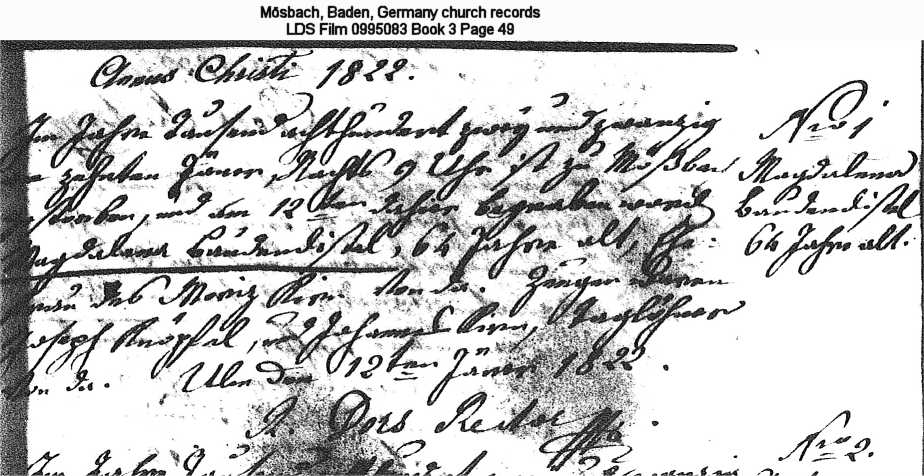 Mösbach, Baden, Germany church records
LDS Film 0995083 Book 3 Page 49
Annus Christi 1822.
Im Jahre Tausend achthundert zwey und zwanzig
zehnten Jäner, Nachts 9 Uhr ist zu Mößbach
gestorben, und den 12ten dahier begraben worden
Magdalena Baudendistel, 64 Jahre alt, Ehe-
frau des Moriz Kirn von da. Zeugen waren
Joseph Knöpfel, und Johannes Kirn, Taglöhner
von da. Ulm den 12ten Jäner 1822.
Dors Rector
Nro 1
Magdalena
Baudendistel
64 Jahre alt.
Nro 2.
Im Jahre